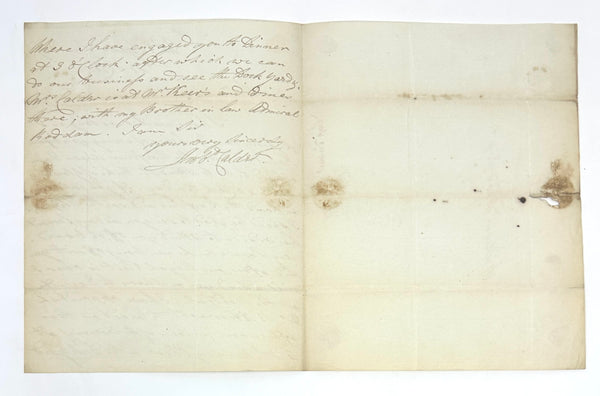 Where I have engaged you to Dinner
at 3 o'Clock after which we can
do our business and see the Dock Yard &c.
Mrs Calder is at Mr and Dines
there, with my Brother in law Admiral
Roddam. I am Sir
yours very Sincerely
Calder.